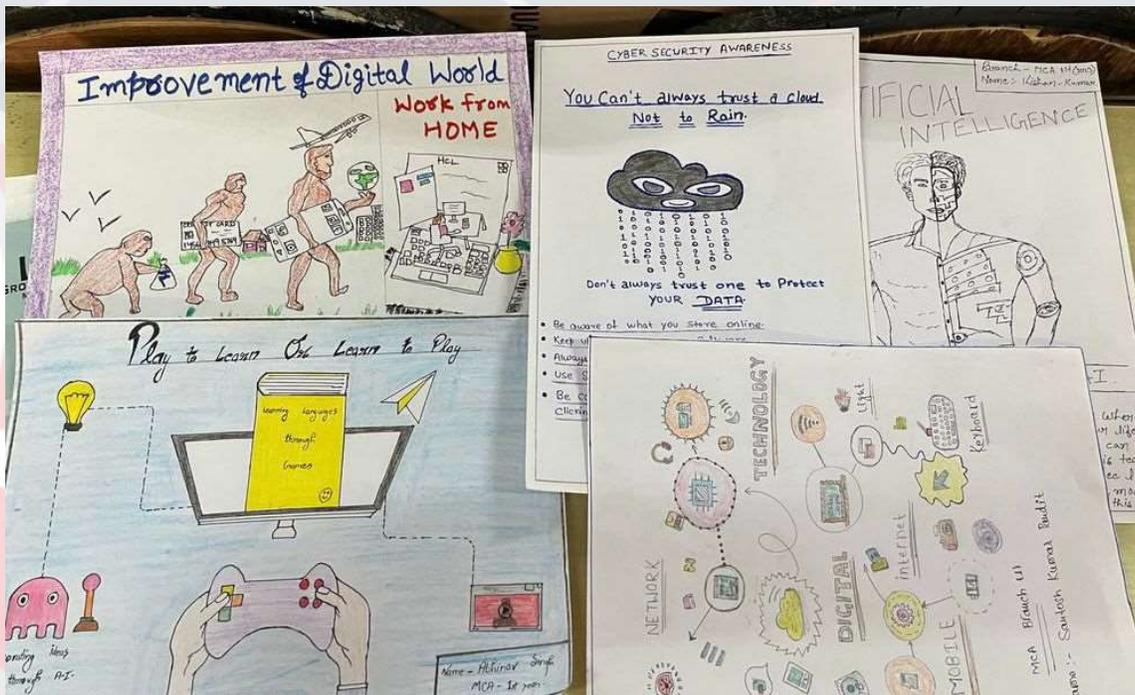 Improvement of Digital World
Work from
HOME
HCL
CYBER SECURITY AWARENESS
You Can't always trust a cloud
Not to Rain.
Don't always trust one to Protect
YOUR DATA
• Be aware of what you store online.
• Keep
• Always
• Use
• Be
clicking
Branch - MCA
Name:- Kishan Kumar
TIFICIAL
INTELLIGENCE
when
can
this
Play to Learn Or Learn to Play
Learning languages
through
Games
ideas
through A.I.
Name - Abhinav Singh
MCA - 1st year.
TECHNOLOGY
Light
Keyboard
NETWORK
DIGITAL
internet
MOBILE
MCA Branch
Santosh Kumar Pandit